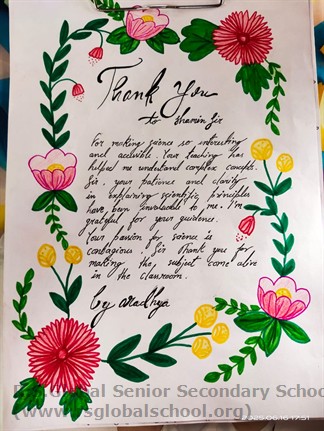 Thank You
to sharmin Sir
For making science so interesting
and accessible. Your teaching has
helped me understand complex concepts.
Sir, your patience and clarity
in explaining scientific principles
have been invaluable to me. I'm
grateful for your guidence.
Your passion for science is
contagious, Sir thank you for
making the subject come alive
in the classroom.
by aradhya
Global Senior Secondary School
(www.rsglobalschool.org)
2025.06.16 17:51